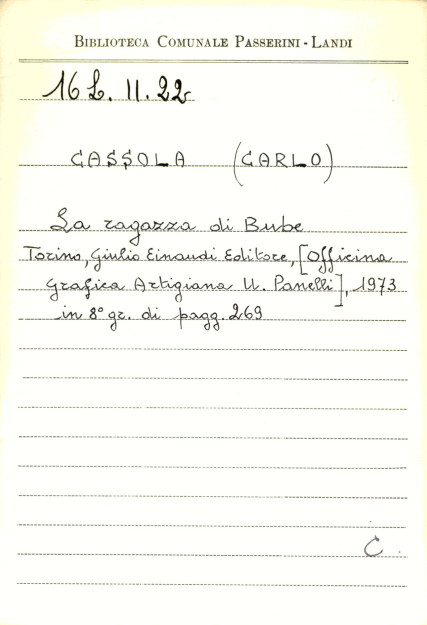 BIBLIOTECA COMUNALE PASSERINI - LANDI
16 L. II. 22
CASSOLA (CARLO)
La ragazza di Bube
Torino, Giulio Einaudi Editore, [Officina
Grafica Artigiana U. Panelli], 1973
in 8° gr. di pagg. 269
C.